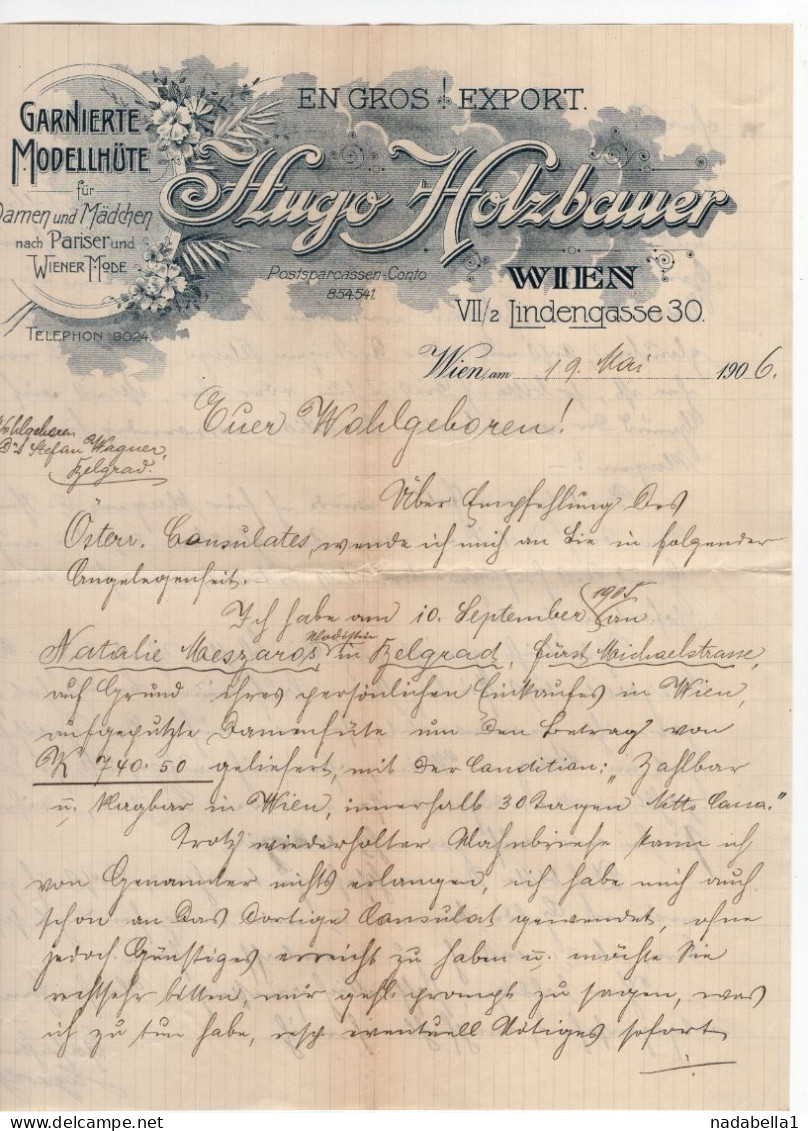 EN GROS EXPORT.
GARNIERTE
MODELLHÜTE
für
Damen und Mädchen
nach Pariser und
WIENER MODE
Hugo Holzbauer
Postsparcassen-Conto
854.541.
WIEN
VII/2 Lindengasse 30.
TELEPHON 9024.
Wien, am 19. Mai 1906.
Euer Wohlgeboren!
Wohlgeboren
Dr Stefan Wagner,
Belgrad.
Über Empfehlung des
Österr. Consulates, wende ich mich an Sie in folgender
Angelegenheit.
Ich habe am 10. September 1905 an
Natalie Meszaros, Modistin in Belgrad, Fürst Michaelstrasse,
auf Grund ihres persönlichen Einkaufes in Wien,
aufgeputzte Damenhüte um den Betrag von
K 740.50 geliefert, mit der Condition: „Zahlbar
u. klagbar in Wien, innerhalb 30 Tagen Netto Cassa."
Trotz wiederholter Mahnbriefe kann ich
von Genannter nichts erlangen, ich habe mich auch
schon an das dortige Consulat gewendet, ohne
jedoch Günstiges erreicht zu haben u. möchte Sie
recht sehr bitten, mir gefl. prompt zu sagen, was
ich zu tun habe, resp. eventuell Nötiges sofort
nadabella1